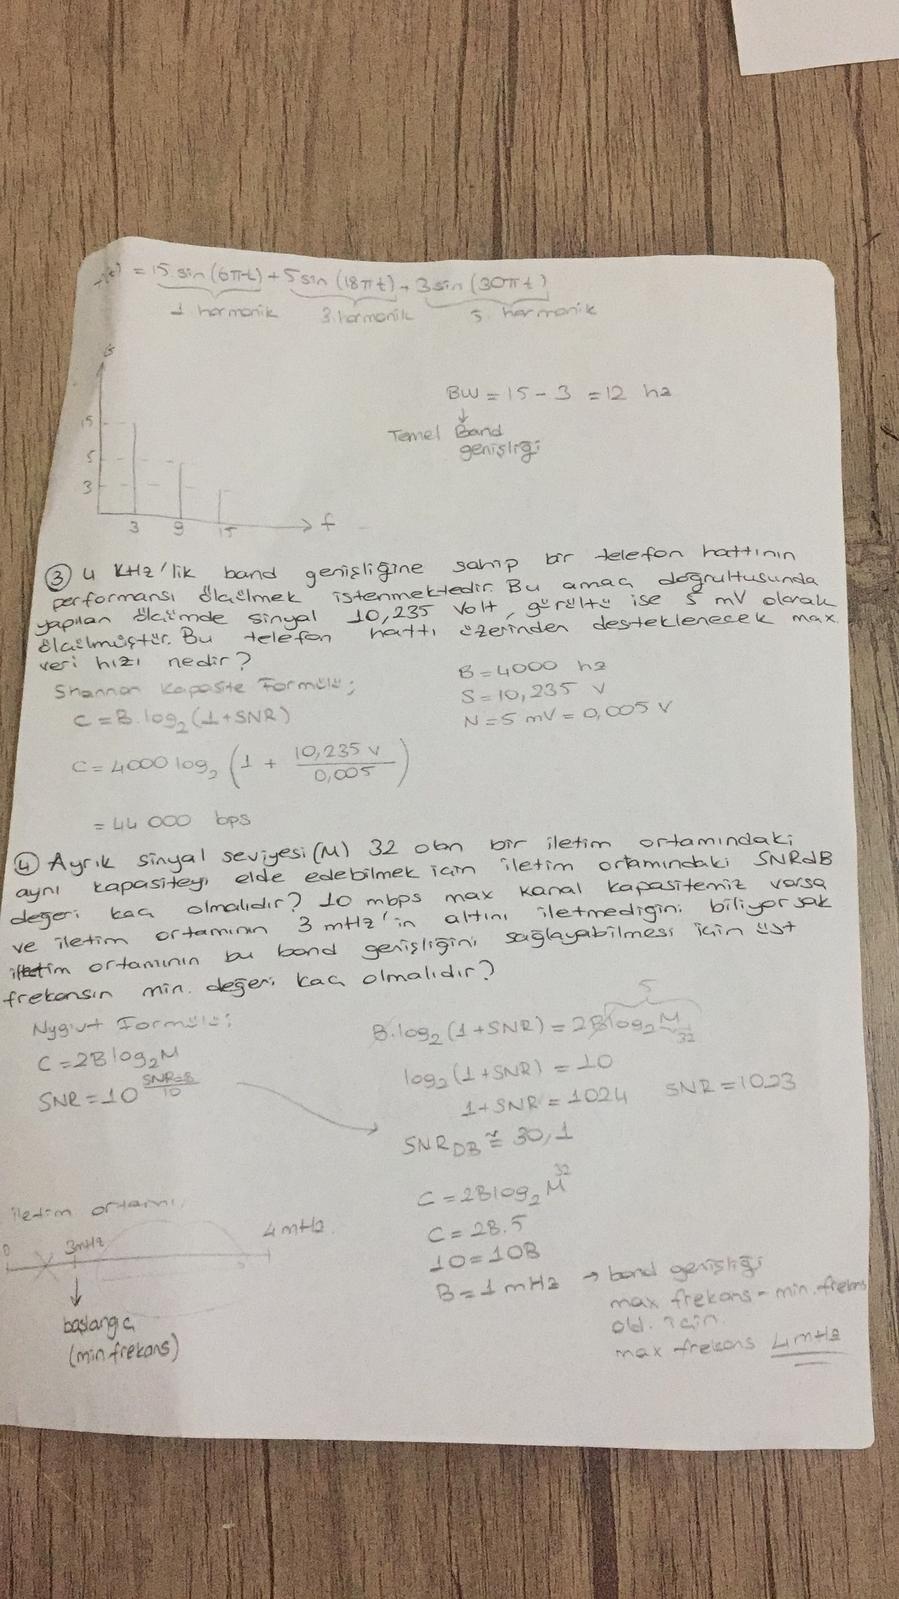 f(t) = 15 sin(6πt) + 5 sin(18πt) + 3 sin(30πt)
1 harmonik 3. harmonik 5. harmonik
G
15
5
3
3 9 15 f
BW = 15 - 3 = 12 hz
↓
Temel Band
genişliği
③ 4 KHz'lik band genişliğine sahip bir telefon hattının
performansı ölçülmek istenmektedir. Bu amaç doğrultusunda
yapılan ölçümde sinyal 10,235 Volt, gürültü ise 5 mV olarak
ölçülmüştür. Bu telefon hattı üzerinden desteklenecek max.
veri hızı nedir?
Shannon Kapasite Formülü;
C = B.log₂(1+SNR)
C = 4000 log₂ (1 + 10,235 v / 0,005)
= 44 000 bps
B = 4000 hz
S = 10,235 V
N = 5 mV = 0,005 V
④ Ayrık sinyal seviyesi (M) 32 olan bir iletim ortamındaki
aynı kapasiteyi elde edebilmek için iletim ortamındaki SNRdB
değeri kaç olmalıdır? 10 mbps max kanal kapasitemiz varsa
ve iletim ortamının 3 mHz'in altını iletmediğini biliyorsak
iletim ortamının bu band genişliğini sağlayabilmesi için üst
frekansın min. değeri kaç olmalıdır?
Nyqut Formülü;
C = 2B log₂M
SNR = 10^(SNR=B/10)
5
B.log₂(1+SNR) = 2B log₂ M
32
log₂(1+SNR) = 10
1+SNR = 1024 SNR = 1023
SNR DB ≅ 30,1
C = 2B log₂ M 32
C = 2B.5
10 = 10B
B = 1 mHz → band genişliği
max frekans - min. frekans
old. için
max frekans 4 mHz
iletim ortamı;
0 3mHz 4mHz
↓
başlangıç
(min.frekans)